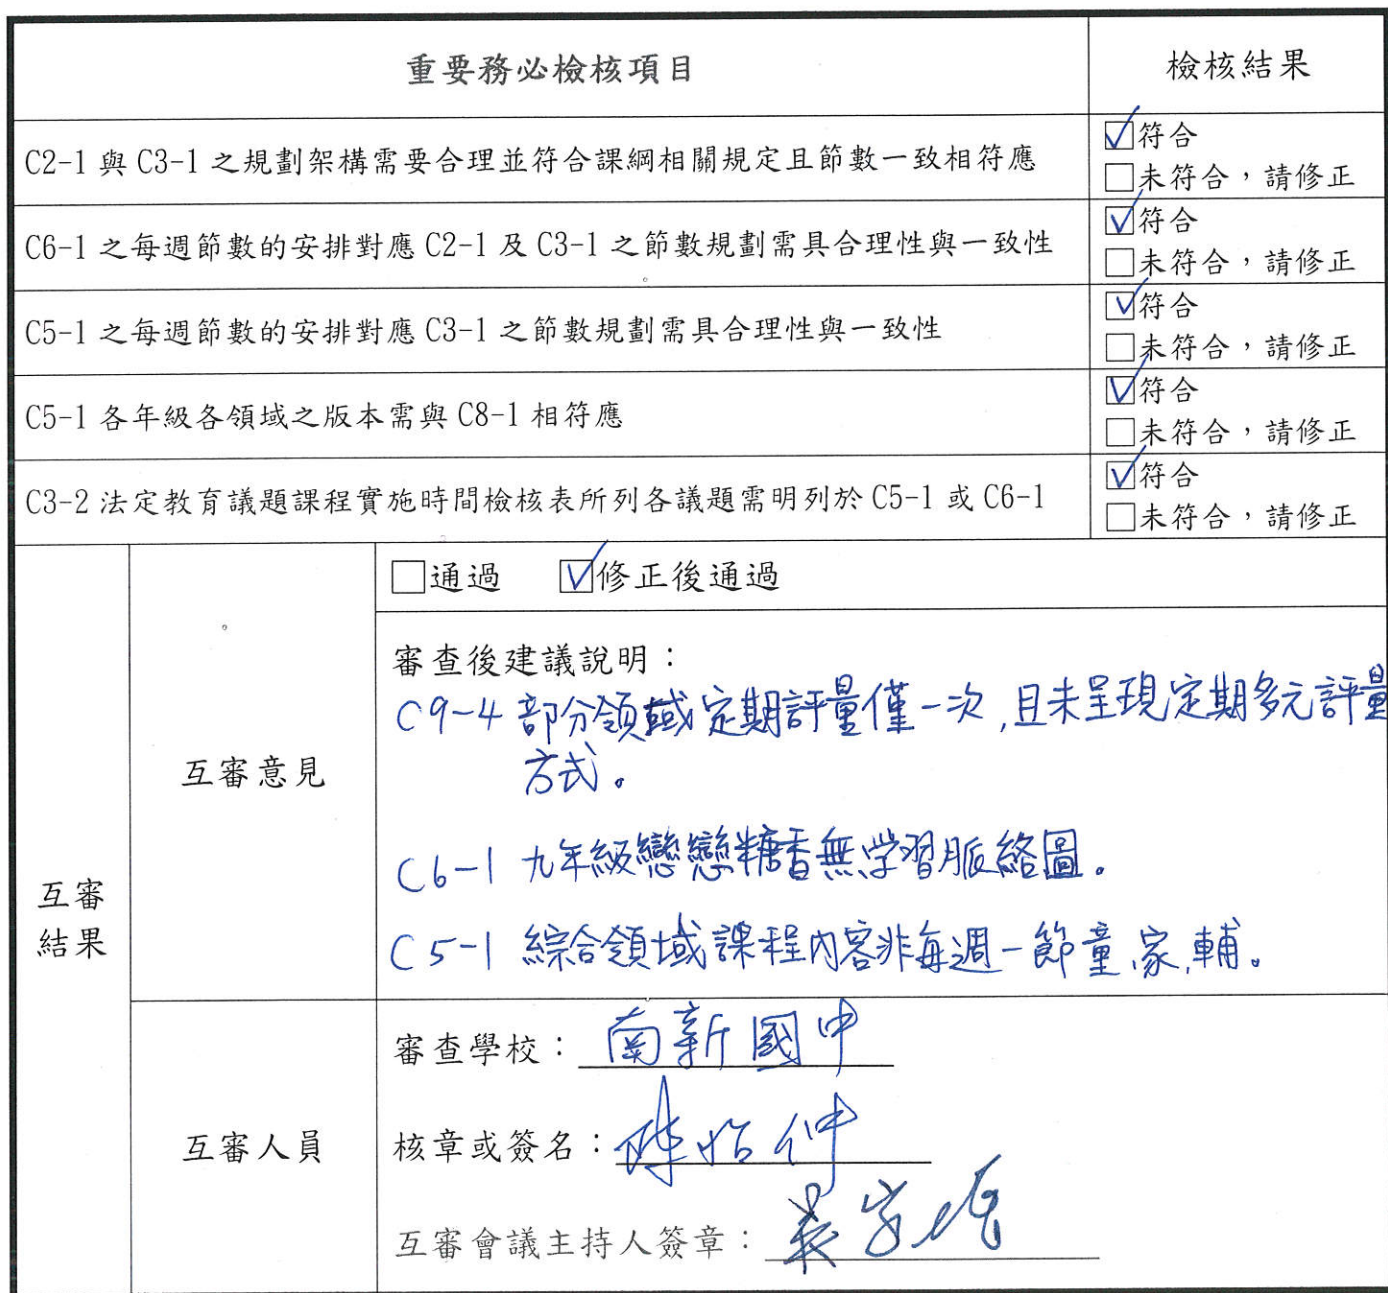 重要務必檢核項目
檢核結果
C2-1 與 C3-1 之規劃架構需要合理並符合課綱相關規定且節數一致相符應
☑符合
□未符合，請修正
C6-1 之每週節數的安排對應 C2-1 及 C3-1 之節數規劃需具合理性與一致性
☑符合
□未符合，請修正
C5-1 之每週節數的安排對應 C3-1 之節數規劃需具合理性與一致性
☑符合
□未符合，請修正
C5-1 各年級各領域之版本需與 C8-1 相符應
☑符合
□未符合，請修正
C3-2 法定教育議題課程實施時間檢核表所列各議題需明列於 C5-1 或 C6-1
☑符合
□未符合，請修正
互審
結果
互審意見
□通過 ☑修正後通過
審查後建議說明：
C9-4 部分領域定期評量僅一次,且未呈現定期多元評量
方式。
C6-1 九年級戀戀糖香無学習脈絡圖。
C5-1 綜合領域課程內容非每週一節童、家、輔。
互審人員
審查學校：南新國中
核章或簽名：
互審會議主持人簽章：